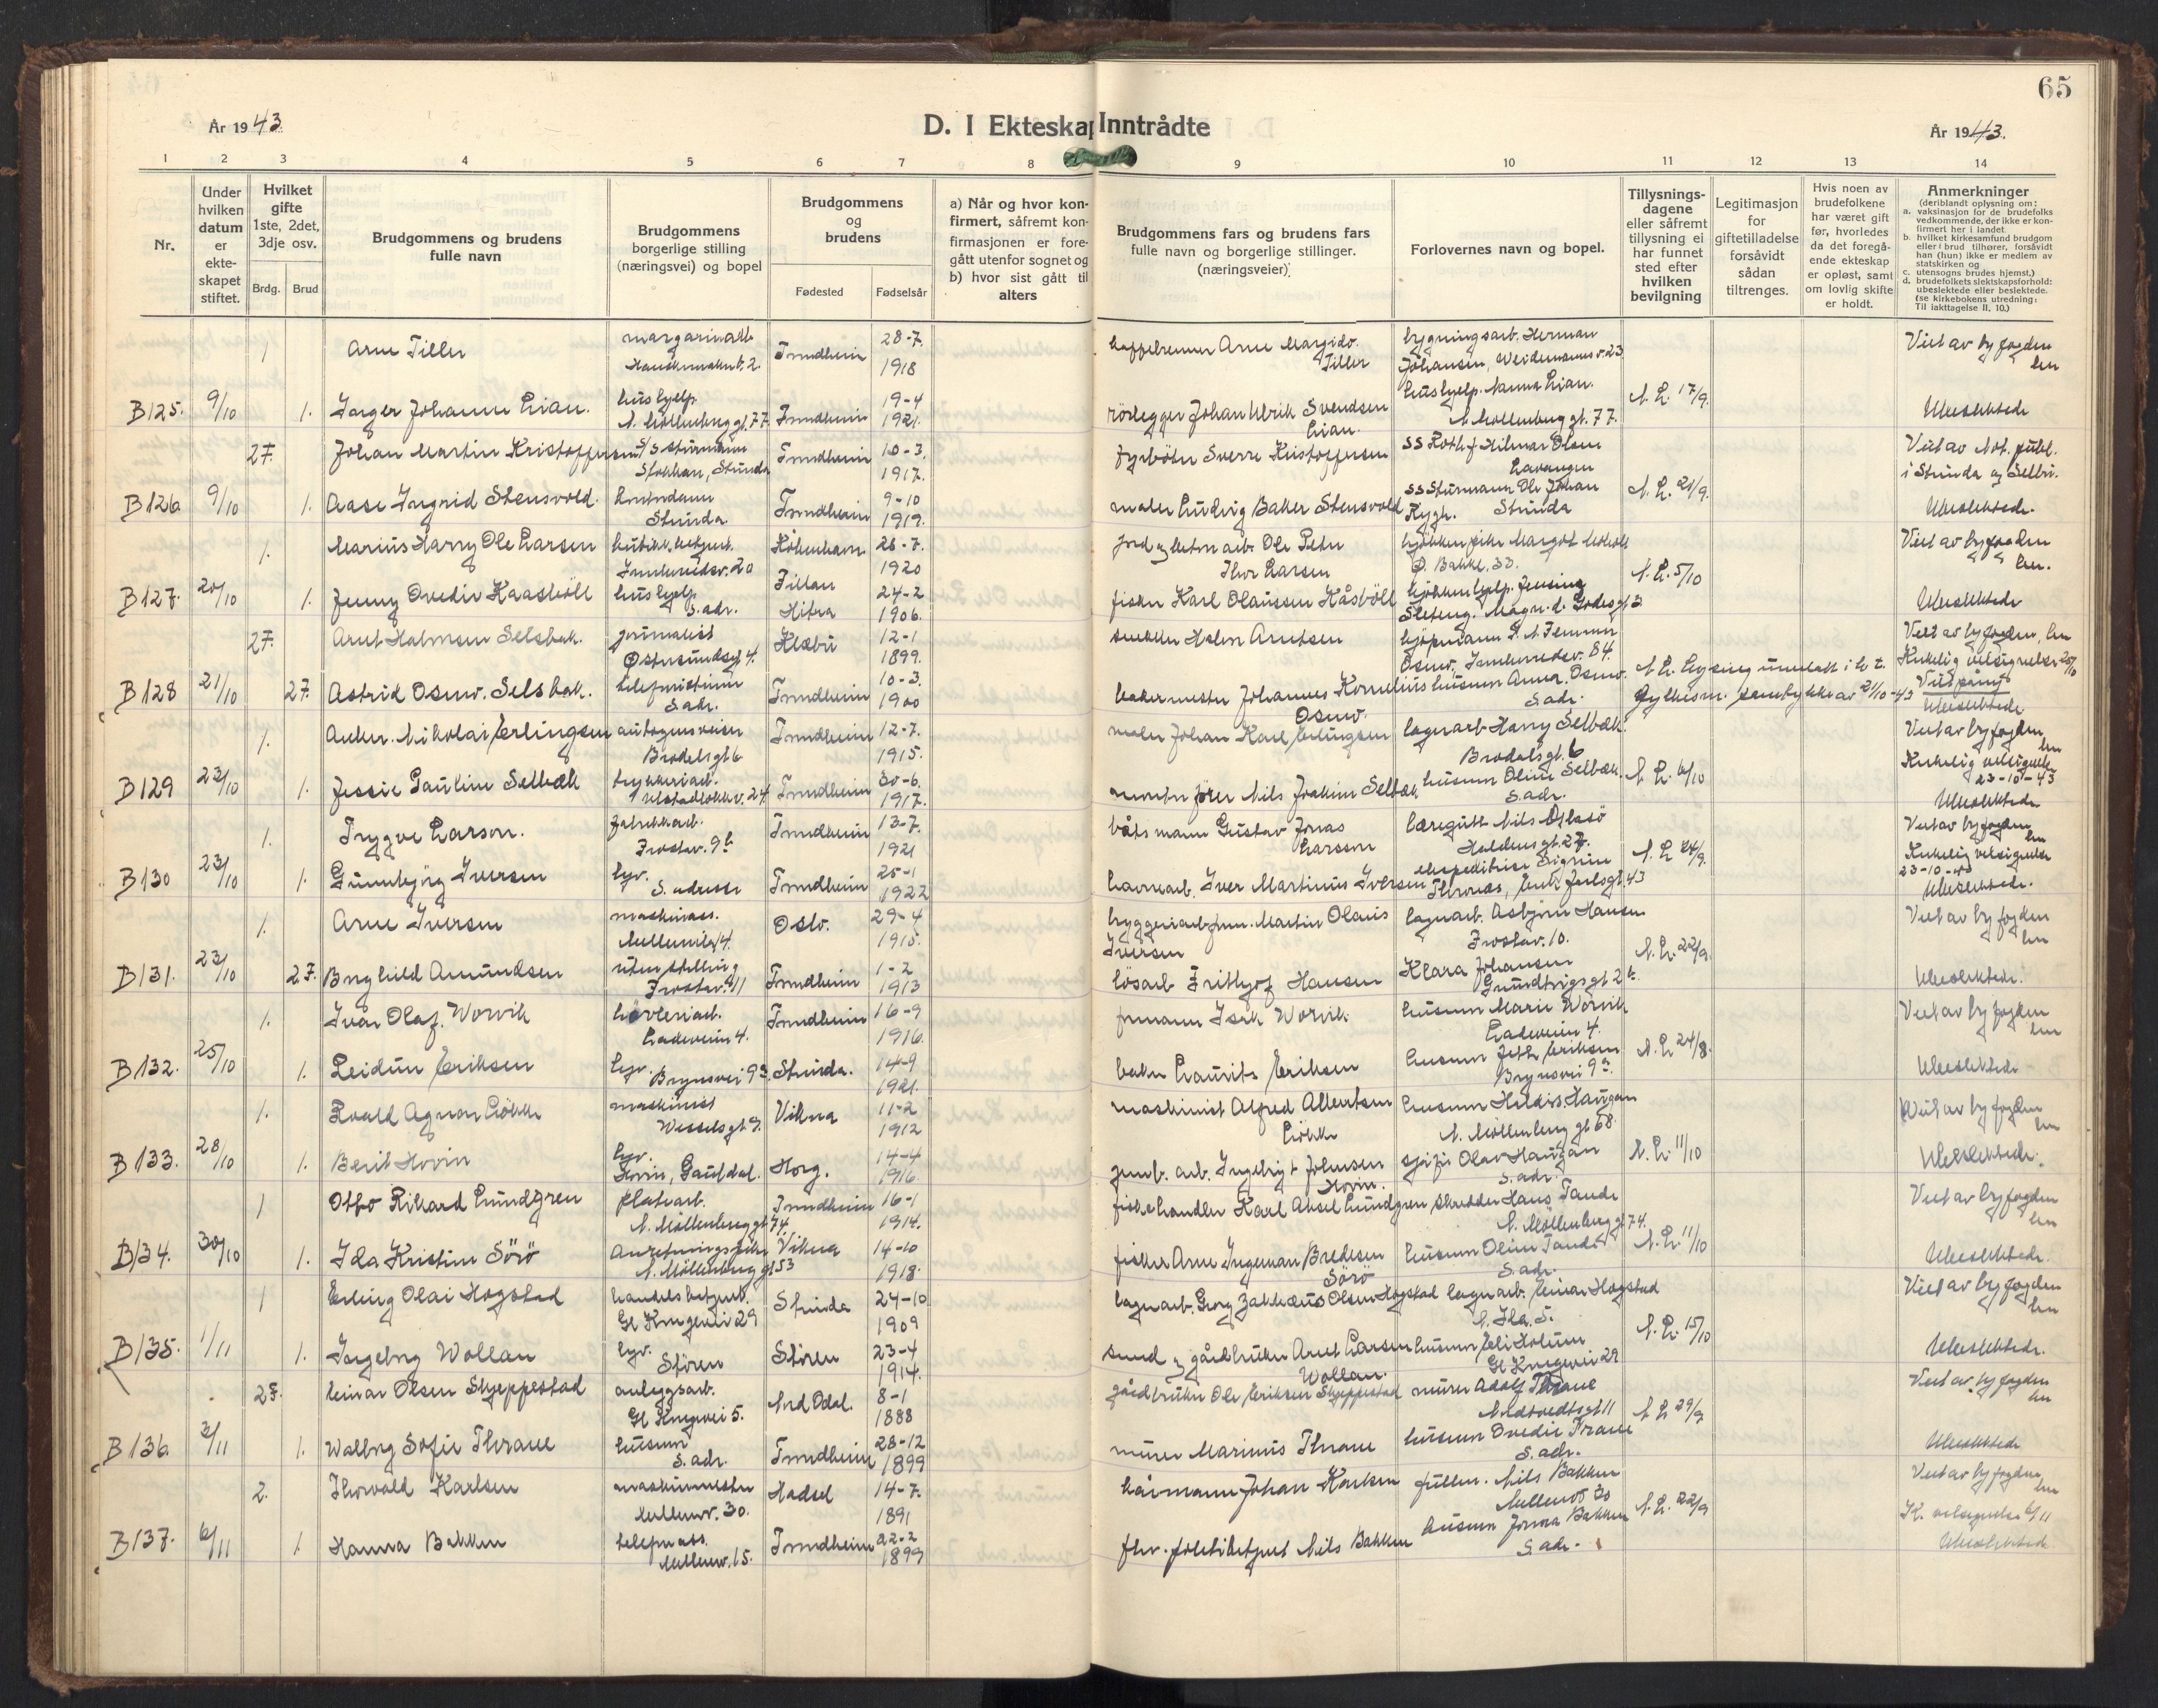 65
År 1943.
D. I Ekteskap Inntrådte
År 1943.
1 2 3 4 5 6 7 8 9 10 11 12 13 14
Nr.
Under hvilken datum er ekte-skapet stiftet.
Hvilket gifte 1ste, 2det, 3dje osv.
Brdg. Brud
Brudgommens og brudens fulle navn
Brudgommens borgerlige stilling (næringsvei) og bopel
Brudgommens og brudens
Fødested Fødselsår
a) Når og hvor kon-
firmert, såfremt kon-
firmasjonen er fore-
gått utenfor sognet og
b) hvor sist gått til
alters
Brudgommens fars og brudens fars
fulle navn og borgerlige stillinger.
(næringsveier)
Forlovernes navn og bopel.
Tillysnings-
dagene
eller såfremt
tillysning ei
har funnet
sted efter
hvilken
bevilgning
Legitimasjon
for
giftetilladelse
forsåvidt
sådan
tiltrenges.
Hvis noen av
brudefolkene
har været gift
før, hvorledes
da det foregå-
ende ekteskap
er opløst, samt
om lovlig skifte
er holdt.
Anmerkninger
(deriblandt oplysning om:
a. vaksinasjon for de brudefolks
vedkommende, der ikke er kon-
firmert her i landet.
b. hvilket kirkesamfund brudgom
eller brud tilhører, forsåvidt
han (hun) ikke er medlem av
statskirken og
c. utensogns brudes hjemst.)
d. brudefolkets slektskapsforhold:
ubeslektede eller beslektede.
(se kirkebokens utredning:
Til iakttagelse II, 10.)
1 Arne Tiller Trondheim 28-7. 1918 Arne Margido. Tiller bygningsarb. Herman Johansen, Weidemannsv. 23 Viet av byfogden
B125. 9/10 1. Inger Johanne Lian. hushjelp N. Möllenberggt. 77. Trondheim 19-4 1921. Johan Ulrik Svendsen Lian. hushjelp. Nanna Lian. N. Möllenberg gt. 77. N. L. 17/9. Ubeslektede
2F. Johan Martin Kristoffersen Strinda Trondheim 10-3. 1917. fyrböter Sverre Kristoffersen Hilmar Olsen Lavangen Viet av Not. publ. i Strinda og Selbu.
B126 9/10 1. Aase Ingrid Stensvold. Strinda. Trondheim 9-10 1919. maler Ludvig Baker Stensvold SS Sturmann Ole Johan Rygh. Strinda N. L. 21/9. Ubeslektede.
1. Marius Harry Ole Larsen Innherredsv. 20 Köbenhavn 28-7. 1920 Ole Peter Thor Larsen Margot Ö. Bakkl. 33. Viet av byfogden
B127. 20/10 1. Jenny Ovedie Kaasböll hushjelp s. adr. Fillan Hitra 24-2 1906. fisker Karl Olaussen Håsböll N. L. 5/10 Ubeslektede
2F. Arnt Halmsen Selsbak. journalist Östersundsgt. 4. Klæbu 12-1 1899. snekker Holm Arntsen kjöpmann Osnes. Innherredsv. 84. Viet av byfogden
B128 21/10 2F. Astrid Selsbak. telefonistinne s. adr. Trondheim 10-3. 1900 bakermester Johannes Kornelius s. adr. Ubeslektede
1. Anker. Nikolai Erlingsen autogensveiser Trondheim 12-7. 1915. maler Johan Karl Erlingsen lagerarb. Harry Selbæk. Viet av byfogden
B129 23/10 1. Jessie Pauline Selbæk Trondheim 30-6. 1917. Nils Joakim Selbæk husmor Oline Selbæk. s. adr. N. L. 6/10 Kirkelig velsignelse 23-10-43 Ubeslektede
1. Trygve Larson. fabrikkarb. Frostav. 9b Trondheim 13-7. 1921 båtsmann Gustav Jonas Larsson læregutt Nils Haldens gt. 27. Viet av byfogden
B130 23/10 1. Gunnbjörg Iversen s. adresse Trondheim 25-1 1922 havnearb. Iver Martinius Iversen ekspeditrise Sigrun N. L. 24/9. Kirkelig velsignelse 23-10-43 Ubeslektede.
1. Arne Iversen maskinass. Mellemila 4. Oslo. 29-4 1915. Martin Olaus Iversen lagerarb. Asbjörn Hansen Frostav. 10. Viet av byfogden
B131. 23/10 2F. Borghild Amundsen uten stilling Frostav. 11 Trondheim 1-2 1913 lösarb Frithjof Hansen Klara Johansen Grundtvigsgt. 2b. N. L. 22/9. Ubeslektede.
1. Ivar Olaf. Worvik Ladeveien 4. Trondheim 16-9 1916. formann Isak Worvik husmor Marie Worvik Ladeveien 4. Viet av byfogden
B132. 25/10 1. Reidun Eriksen Brynsvei 9a. Strinda. 14-9 1921. baker Laurits Eriksen husmor Eriksen Brynsvei 9a. N. L. 24/8. Ubeslektede
1. Roald Agnar Lökke maskinist Wesselsgt. 9. Vikna 11-2 1912 maskinist Alfred Albertsen Lökke husmor Haugan N. Möllenberg gt 68. Viet av byfogden
B133. 28/10 1. Berit Hovin Hovin, Gauldal. Horg. 14-4 1916. Ingebrigt Johnsen Hovin. Olav Haugan s. adr. N. L. 11/10 Ubeslektede.
1 Otto Rikard Lundgren platearb. N. Möllenberg gt 74. Trondheim 16-1 1914. fiskehandler Karl Aksel Lundgren skredder Hans Tande N. Möllenberg gt 74. Viet av byfogden
B134. 30/10 1. Ida Kristine Sörö N. Möllenberg gt 53 Vikna 14-10 1918. fisker Arne Ingeman Bredesen Sörö husmor Oline Tande s. adr. N. L. 11/10 Ubeslektede.
1 Erling Olai Hogstad handelsbetjent. Gl Kongevei 29 Strinda 24-10 1909 lagerarb. Georg Zakkæus Olsen Hogstad lagerarb. Einar Hogstad N. Ila. 5. Viet av byfogden
B135. 1/11 1. Ingeborg Wollan Stören Stören 23-4 1914. smed og gårdbruker Arnt Larsen Wollan. husmor Gl Kongevei 29 N. L. 15/10 Ubeslektede.
2F. Einar Olsen Skjeppestad anleggsarb. Gl Kongevei 5. Nord Odal. 8-1 1888 gårdbruker Ole Eriksen Skjeppestad murer Adolf Thrane Viet av byfogden
B136 3/11 1. Walborg Sofie Thrane husmor s. adr. Trondheim 28-12 1899 murer Marinius Thrane husmor Ovedie Trane s. adr. N. L. 29/9 Ubeslektede
2. Thorvald Karlsen maskinmester Mellemv. 30. Hadsel 14-7. 1891 Johan Karlsen Nils Bakken Mellemv 30 Viet av byfogden
B137. 6/11 1. Hanna Bakken telefonass. Mellemv. 15. Trondheim 22-2 1899 fhv. politibetjent Nils Bakken husmor Bakken s. adr. N. L. 22/9 K. velsignelse 6/11 Ubeslektede